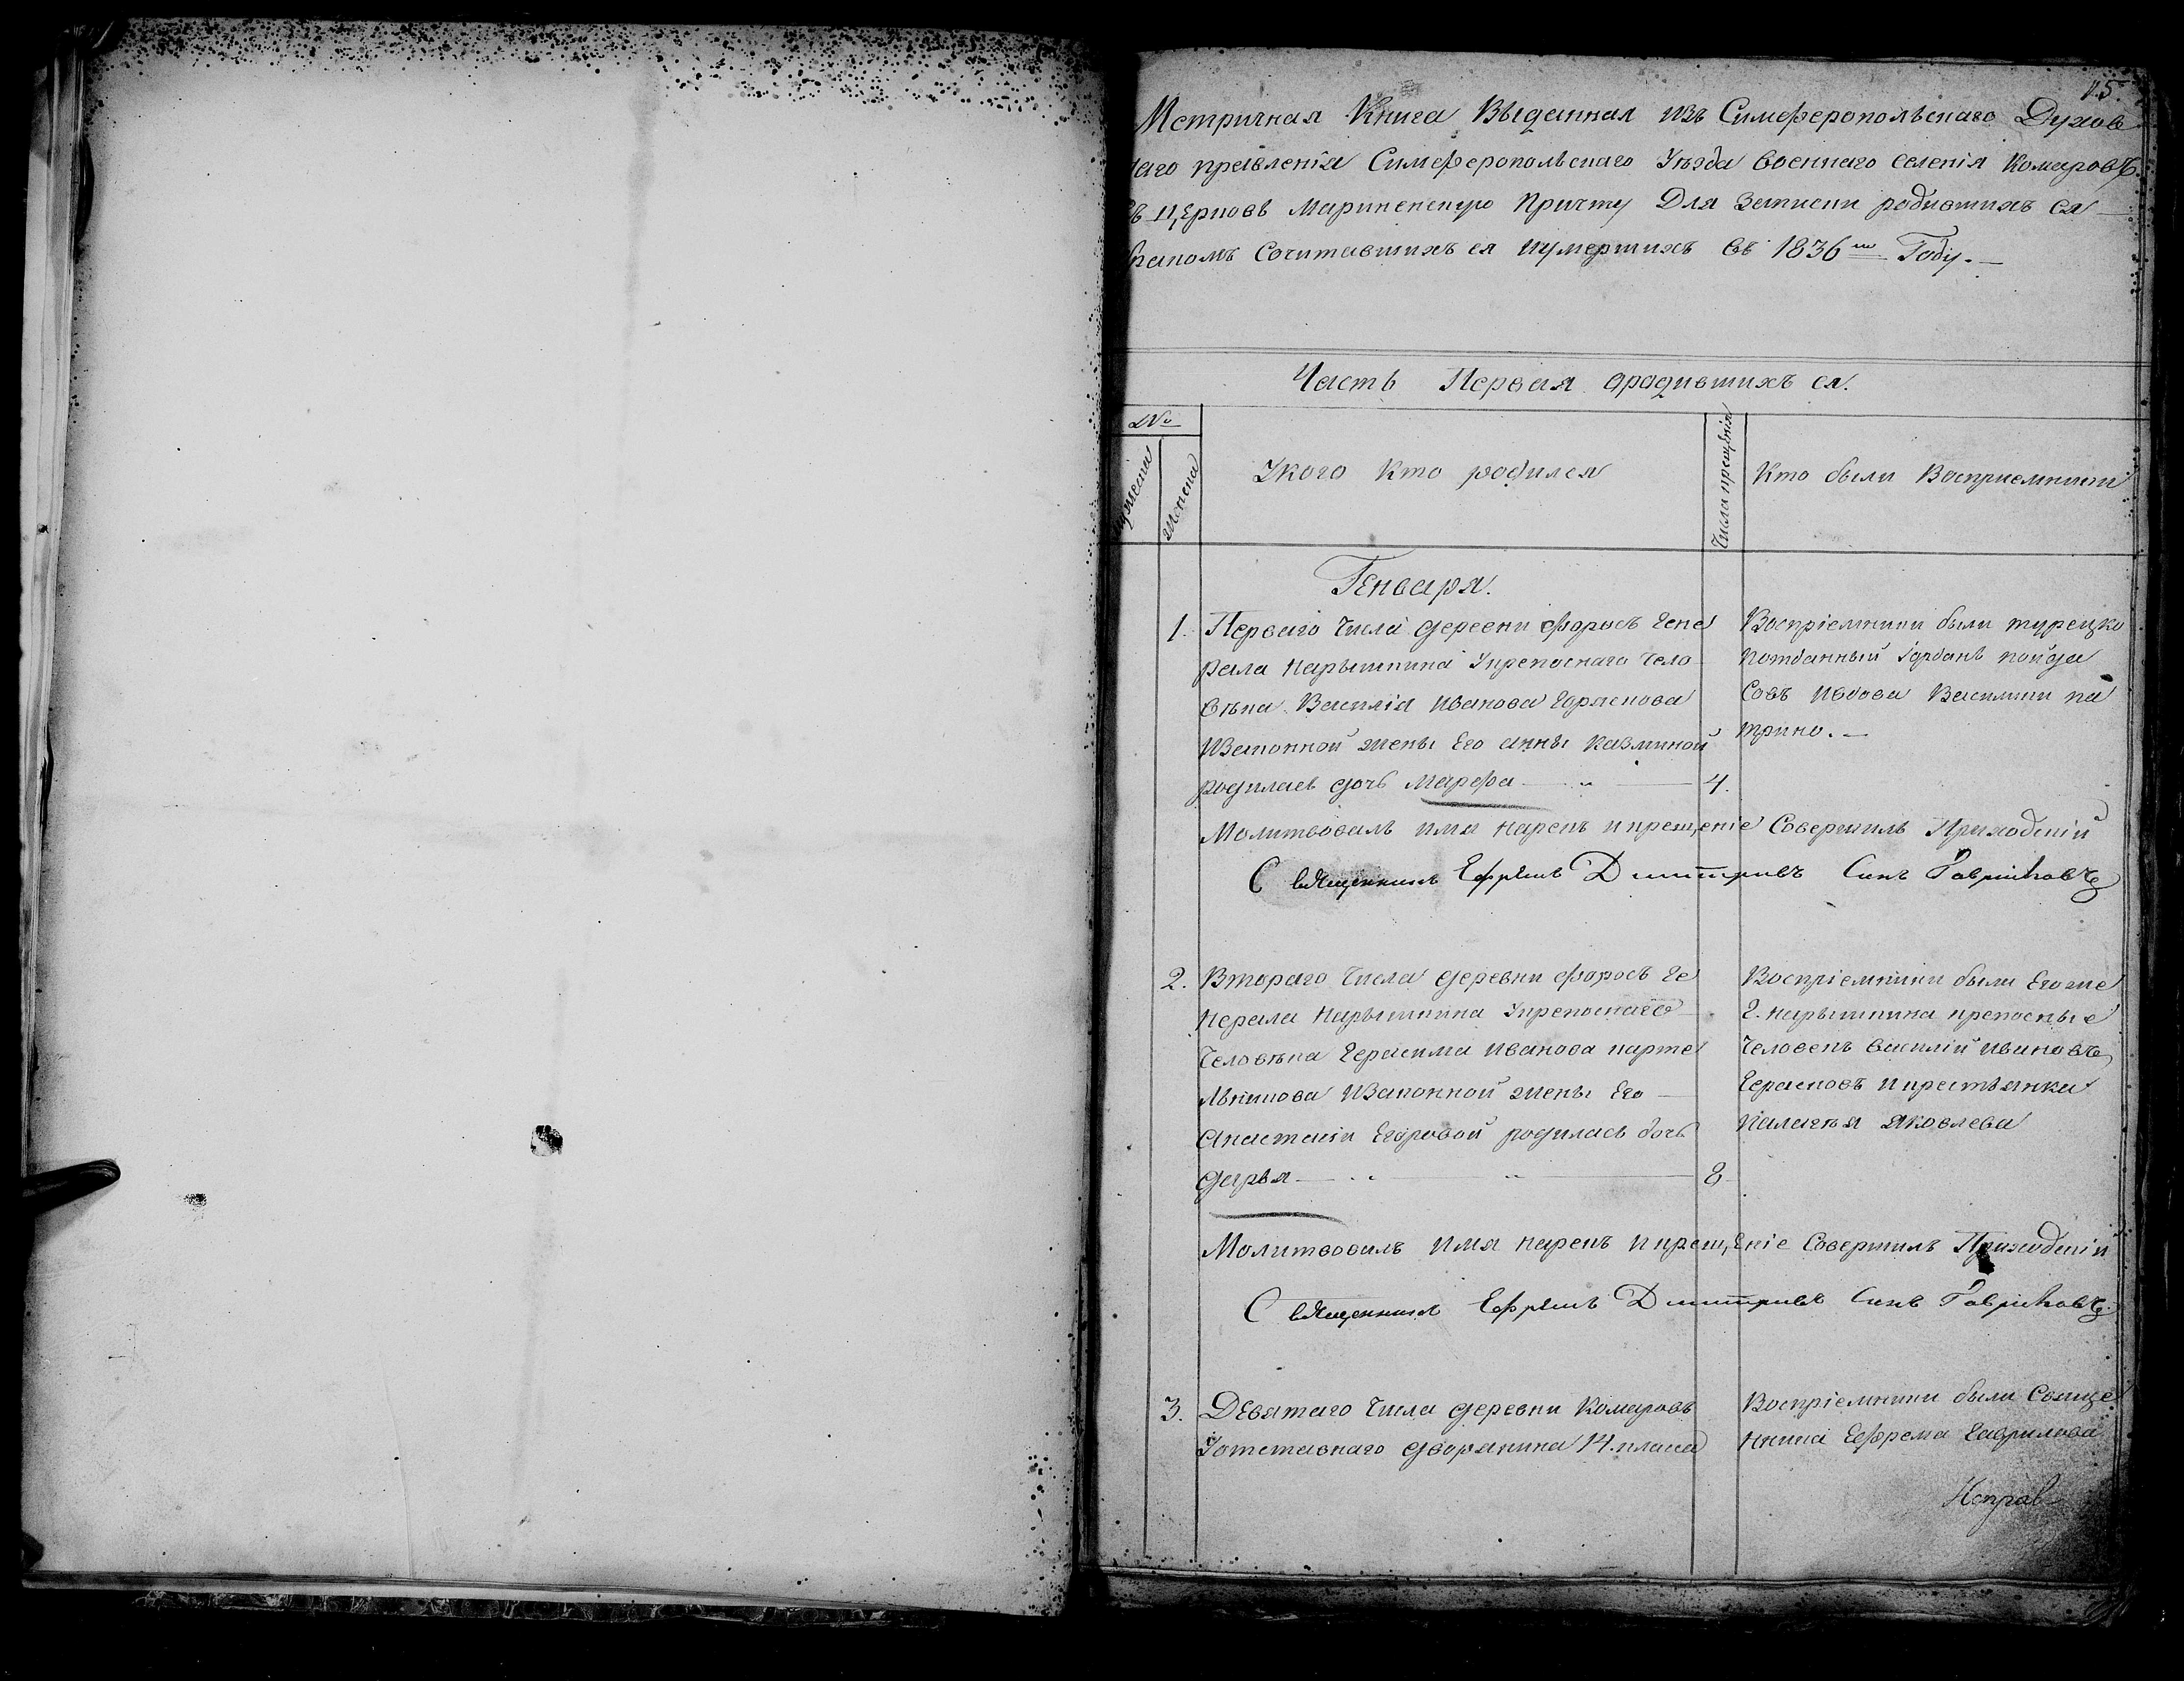 15.
Метричная Книга Выданная изъ Симферопольскаго Духов
наго правленія Симферопольскаго Уѣзда военнаго селенія Комаровъ
въ церковь Мариненскую Причту Для записки родившихъ ся —
бракомъ Сочитавшихъ ся иумершихъ въ 1836мъ Году. —
Часть Первая ородившихъ ся.
№
мужеска
женска
Укого Кто родился
Числа крещенія
Кто были Восприемники
Генваря.
1. Перваго числа деревни Форосъ Гене
рала Нарышкина Укрепоснаго чело
вѣка Василія Иванова
Изаконной жены Его анны Казминой
родилась дочь Марфа — 4.
Воспріемники были турецко
потданный
Василики па
трино. —
Молитвовалъ имя нарекъ икрещеніе Совершилъ Приходскій
Священникъ Ефремъ Димитривъ Синъ Гавриковъ
2. Втораго числа деревни Форосъ Ге
нерала Нарышкина Укрепоснаго
Человѣка Герасима Иванова
Изаконной жены Его —
Анастасіи Егоровой родилась дочь
дарья — 8
Воспріемники были Егоже
Г. Нарышкина крепосные
Человекъ василій Ивановъ
икрестьянка
Палагѣя Яковлева
Молитвовалъ имя нарекъ икрещеніе Совершилъ Приходскій
Священникъ Ефремъ Димитривъ Синъ Гавриковъ.
3. Девятаго числа деревни Комаровъ
Уотставнаго дворянина 14. класса
Воспріемники были Свяще
нника Ефрема Гаврикова